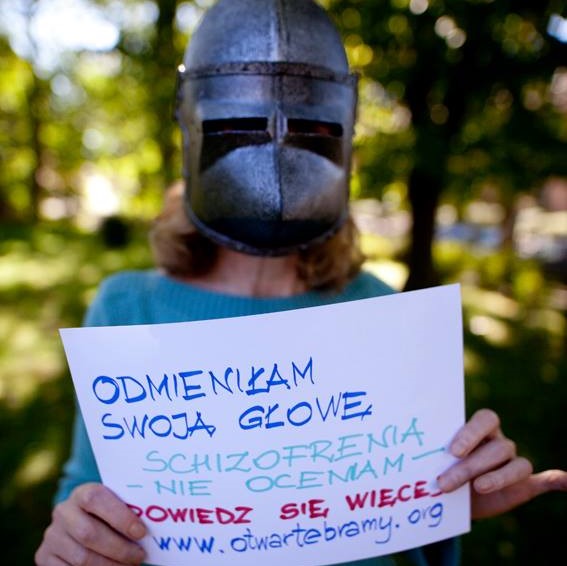 ODMIENIŁAM
SWOJĄ GŁOWĘ
SCHIZOFRENIA
- NIE OCENIAM -
POWIEDZ SIĘ WIĘCEJ
www.otwartebramy.org